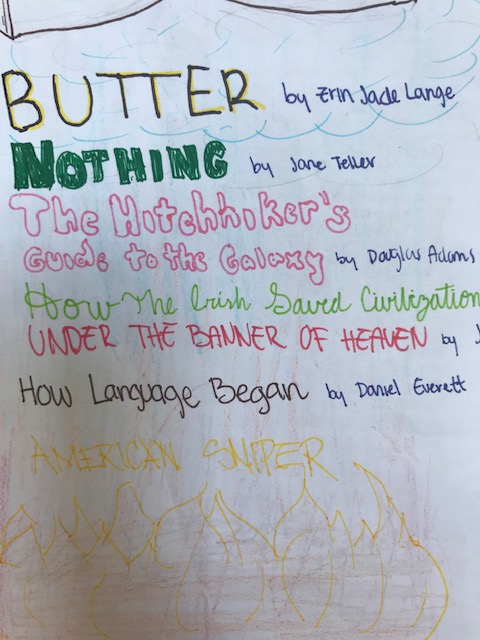 BUTTER by Erin Jade Lange
NOTHING by Jane Teller
The Hitchhiker's
Guide to the Galaxy by Douglas Adams
How The Irish Saved Civilization
UNDER THE BANNER OF HEAVEN by J
How Language Began by Daniel Everett
AMERICAN SNIPER